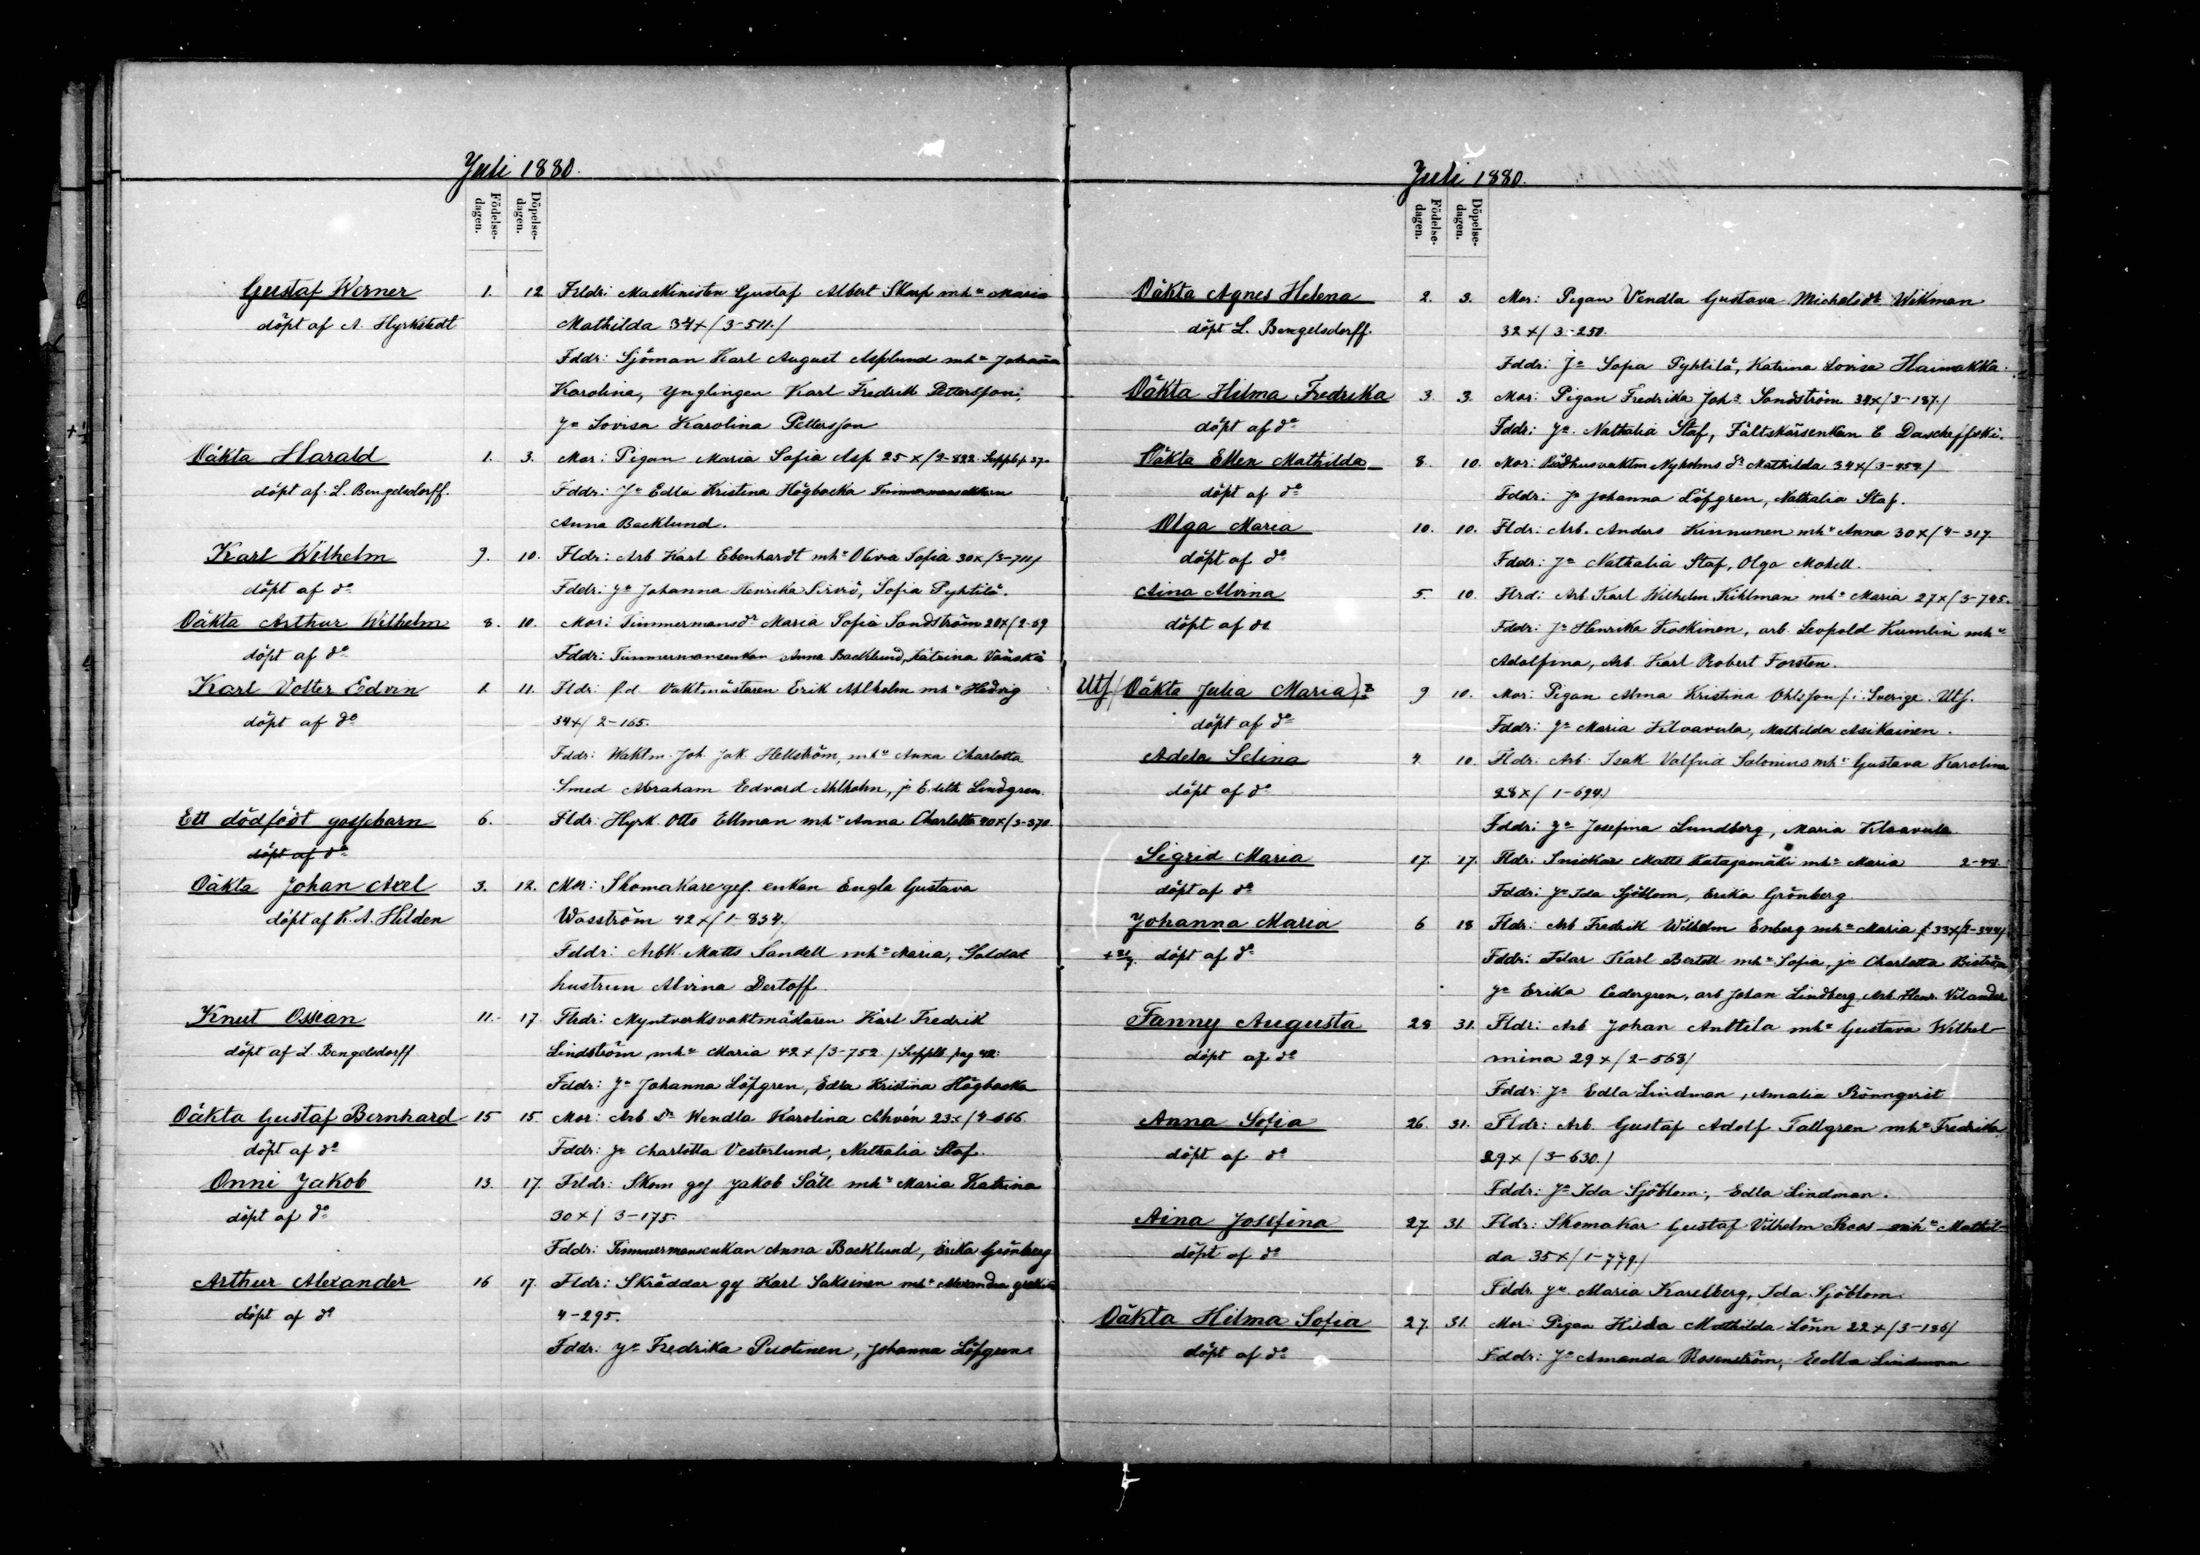 Juli 1880.
Födelse-
dagen.
Döpelse-
dagen.
Gustaf Werner 1. 12 Frldr: Maskinisten Gustaf Albert Skarp mh:u Maria
döpt af A. Hyrkstedt Mathilda 34 x/3-511./
Fddr: Sjöman Karl August Asplund mh:u Johanna
Karolina, Ynglingen Karl Fredrik Pettersson,
J:u Lovisa Karolina Pettersson
Oäkta Harald 1. 3. Mor: Pigan Maria Sofia Asp 25 x/2-822. Suppl. p 37.
döpt af L. Bengelsdorff. Fddr: J:u Edla Kristina Högbacka Timmermansenkan
Anna Backlund.
Karl Wilhelm 9. 10. Fldr: Arb Karl Ebenhardt mh:u Olivia Sofia 30 x/3-711/
döpt af d:o Fddr: J:u Johanna Henrika Sirviö, Sofia Pyhtilä.
Oäkta Arthur Wilhelm 8. 10. Mor: Timmermansd:r Maria Sofia Sandström 20 x/2-69
döpt af d:o Fddr: Timmermansenkan Anna Backlund, Katrina Vänskä
Karl Volter Edvin 1. 11. Fldr: f.d. Vaktmästaren Erik Ahlholm mh:u Hedvig
döpt af d:o 34 x/2-165.
Fddr: Waktm. Joh. Jak Hellström, mh:u Anna Charlotta
Smed Abraham Edvard Ahlholm, j:u Edith Lindgren.
Ett dödfödt gossebarn 6. Fldr: Hyrk Otto Ekman mh:u Anna Charlotta 40 x/3-370.
döpt af d:o
Oäkta Johan Axel 3. 12. Mor: Skomakareges. enkan Engla Gustava
döpt af K. A. Hilden Wasström 42 x/1-854.
Fddr: Arbk. Matts Sandell mh:u Maria, Soldat
hustrun Alvina Dertoff.
Knut Ossian 11. 17. Fldr: Myntverksvaktmästaren Karl Fredrik
döpt af L Bengelsdorff Lindström mh:u Maria 42 x/3-752./ Supplt pag 42.
Fddr: J:u Johanna Löfgren, Edla Kristina Högbacka
Oäkta Gustaf Bernhard 15 15. Mor: Arb d:r Wendla Karolina Ahvén 23 x/4-666.
döpt af d:o Fddr: J:u Charlotta Vesterlund, Nathalia Staf.
Onni Jakob 13. 17. Frldr: Skom gej Jakob Säll mh:u Maria Katrina
döpt af d:o 30 x/3-175.
Fddr: Timmermansenkan Anna Backlund, Erika Grönberg
Arthur Alexander 16 17. Fldr: Skräddar gej Karl Saksinen mh:u Alexandra
döpt af d:o 4-295.
Fddr: J:u Fredrika Puotinen, Johanna Löfgren
Juli 1880.
Födelse-
dagen.
Döpelse-
dagen.
Oäkta Agnes Helena 2. 3. Mor: Pigan Vendla Gustava Michelsd:r Wikman
döpt L. Bengelsdorff. 32 x/3-250.
Fddr: J:u Sofia Pyhtilä, Katrina Lovisa Haimakka.
Oäkta Hilma Fredrika 3. 3. Mor: Pigan Fredrika Joh:s Sandström 34 x/3-187./
döpt af d:o Fddr: J:u Nathalia Staf, Fältskärsenkan E Dascheffski.
Oäkta Ellen Mathilda 8. 10. Mor: Rådhusvaktm Nyholms d:r Mathilda 34 x/3-452/
döpt af d:o Fddr: J:u Johanna Löfgren, Nathalia Staf.
Olga Maria 10. 10. Fldr: Arb. Anders Kinnunen mh:u Anna 30 x/4-317.
döpt af d:o Fddr: J:u Nathalia Staf, Olga Mohell.
Aina Alvina 5. 10. Flrd: Arb Karl Wilhelm Kihlman mh:u Maria 27 x/3-745.
döpt af do Fddr: J:u Henrika Koskinen, arb. Leopold Kumlin mh:u
Adolfina, Arb. Karl Robert Forsten.
Utf (Oäkta Julia Maria) 9 10. Mor: Pigan Alma Kristina Ohlsson f. i Sverige. Utf.
döpt af d:o Fddr: J:u Maria Kilvavula, Mathilda Asikainen.
Adela Selina 4 10. Fldr: Arb. Isak Valfrid Salonius mh:u Gustava Karolina
döpt af d:o 28 x/1-694./
Fddr: J:u Josefina Lundberg, Maria
Sigrid Maria 17. 17. Fldr: Snickar Matts Katajamäki mh:u Maria 2-48.
döpt af d:o Fddr: J:u Ida Sjöblom, Erika Grönberg.
Johanna Maria 6 18 Fldr: Arb Fredrik Wilhelm Enberg mh:u Maria f. 33 x/2-344/
döpt af d:o Fddr: Filar Karl Bertell mh:u Sofia, j:u Charlotta Biström
J:u Erika Cedergren, arb Johan Lindberg, Arb. Henr. Vilander
Fanny Augusta 28 31. Fldr: Arb Johan Anttila mh:u Gustava Wilhel-
döpt af d:o mina 29 x/2-568/
Fddr: J:u Edla Lindman, Amalia Rönnqvist
Anna Sofia 26. 31. Fldr: Arb. Gustaf Adolf Tallgren mh:u Fredrika
döpt af d:o 29 x/3-630./
Fddr: J:u Ida Sjöblom, Edla Lindman.
Aina Josefina 27 31. Fldr: Skomakar Gustaf Vilhelm Roos mh:u Mathil-
döpt af d:o da 35 x/1-779./
Fddr. J:u Maria Karelberg, Ida Sjöblom.
Oäkta Hilma Sofia 27. 31. Mor: Pigan Hilda Mathilda Lönn 22 x/3-136/
döpt af d:o Fddr: J:u Amanda Rosenström, Edla Lindman